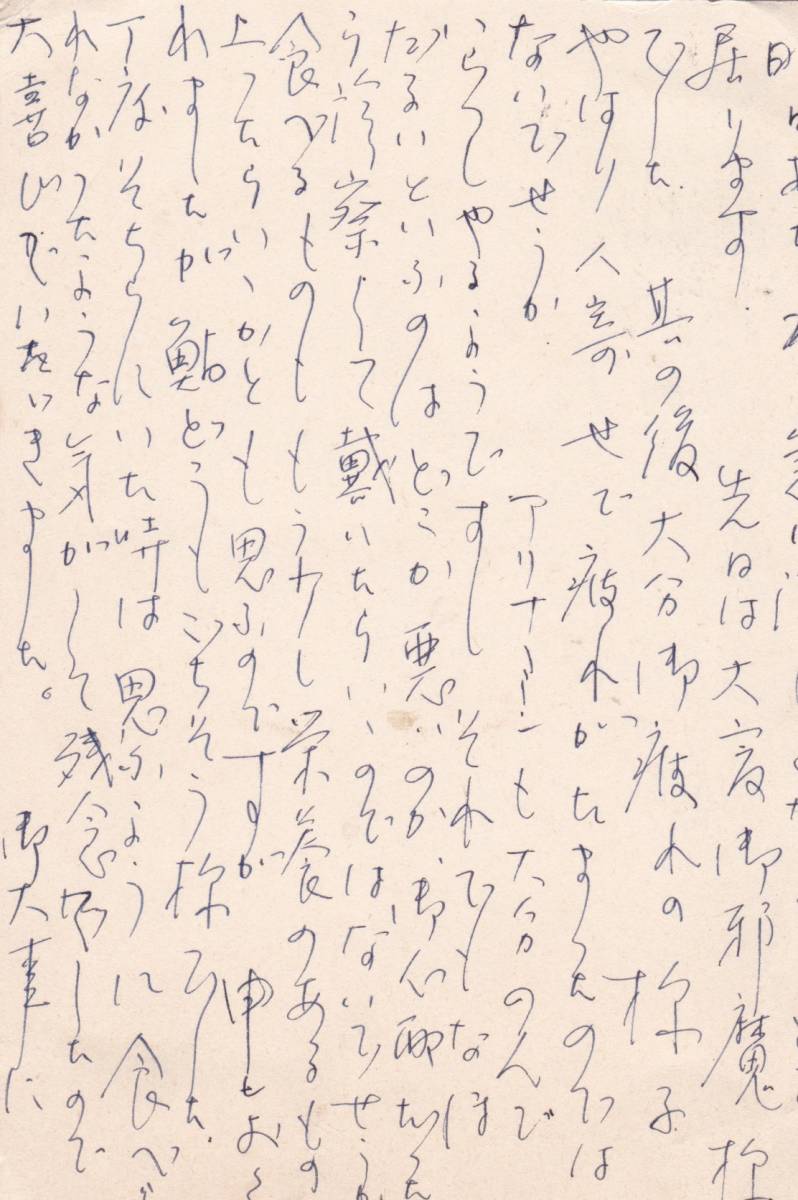 居ります。先日は大変御邪魔様
でした。其の後大分御疲れの様子
やはり人寄せで疲れがたまったのでは
ないでせうか。アリナミンも大分のんで
いらっしやるようですし それでもなほ
だるいといふのはどこか悪いのか、御心配だったら
う診察して戴いたらいゝのではないでせうか
食べるものももう少し栄養のあるもの
上ったらいゝかとも思ふのですが 申しおく
れましたが鮎どうもごちそう様でした。
丁度そちらにいた時は思ふように食べら
れなかったような気がして残念でしたので
大喜びでいただきました。御大事に